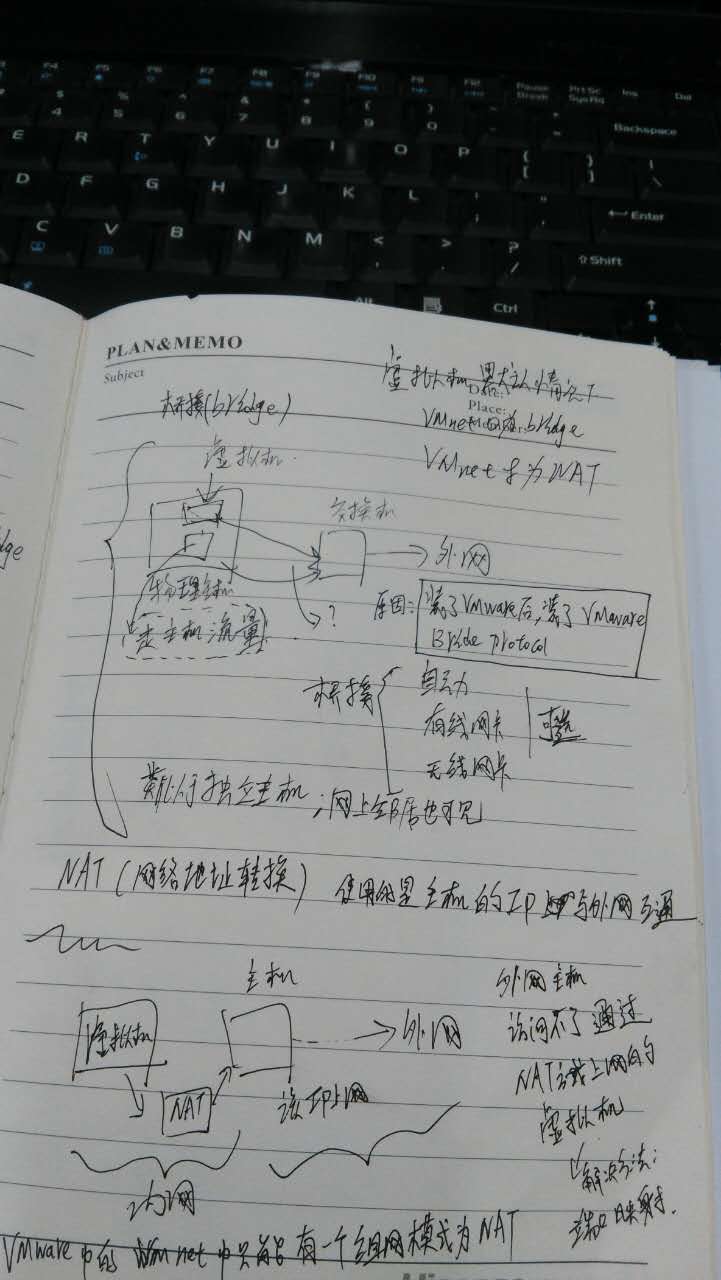 F4 F5 F6 F7 F8 F9 F10 F11 F12 Pause Break PrtSc SysRq Ins Del
$ 4 % 5 ^ 6 & 7 * 8 ( 9 ) 0 Backspace
E R T Y U I O P { [ } ] | \
D F G H J K L : ; " ' Enter
C V B N M < , > . ? / Shift
Alt Ctrl
PLAN&MEMO
Subject
Date:
Place:
虚拟机默认情况下
桥接(bridge)
VMnet0为bridge
虚拟机
VMnet8为NAT
交换机
外网
物理主机
走主机流量
?
原因:
装了VMware后,装了VMaware
Bride protocol
桥接
自动
有线网卡
无线网卡
可选
类似于独立主机;网上邻居也可见
NAT(网络地址转换) 使用的是主机的IP与外网互通
主机
虚拟机
NAT
外网
该IP上网
内网
外网主机
访问不了通过
NAT方式上网的
虚拟机
解决方法:
端口映射.
VMware中的 Vmnet中只能有一个组网模式为NAT